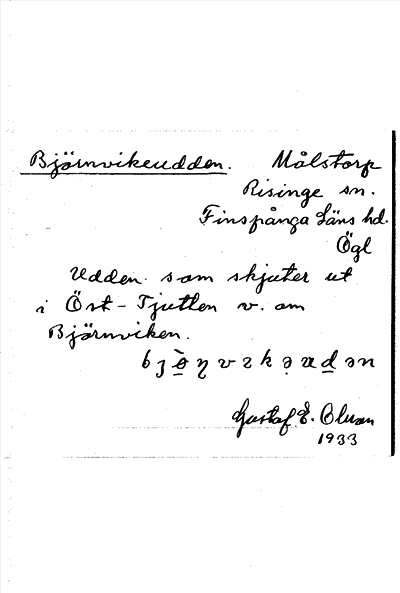 Björnvikeudden. Målstorp
Risinge sn.
Finspånga Läns hd.
Ögl
Udden som skjuter ut
i Öst-Tjutten v. om
Björnviken.
Gustaf E. Olsson
1933